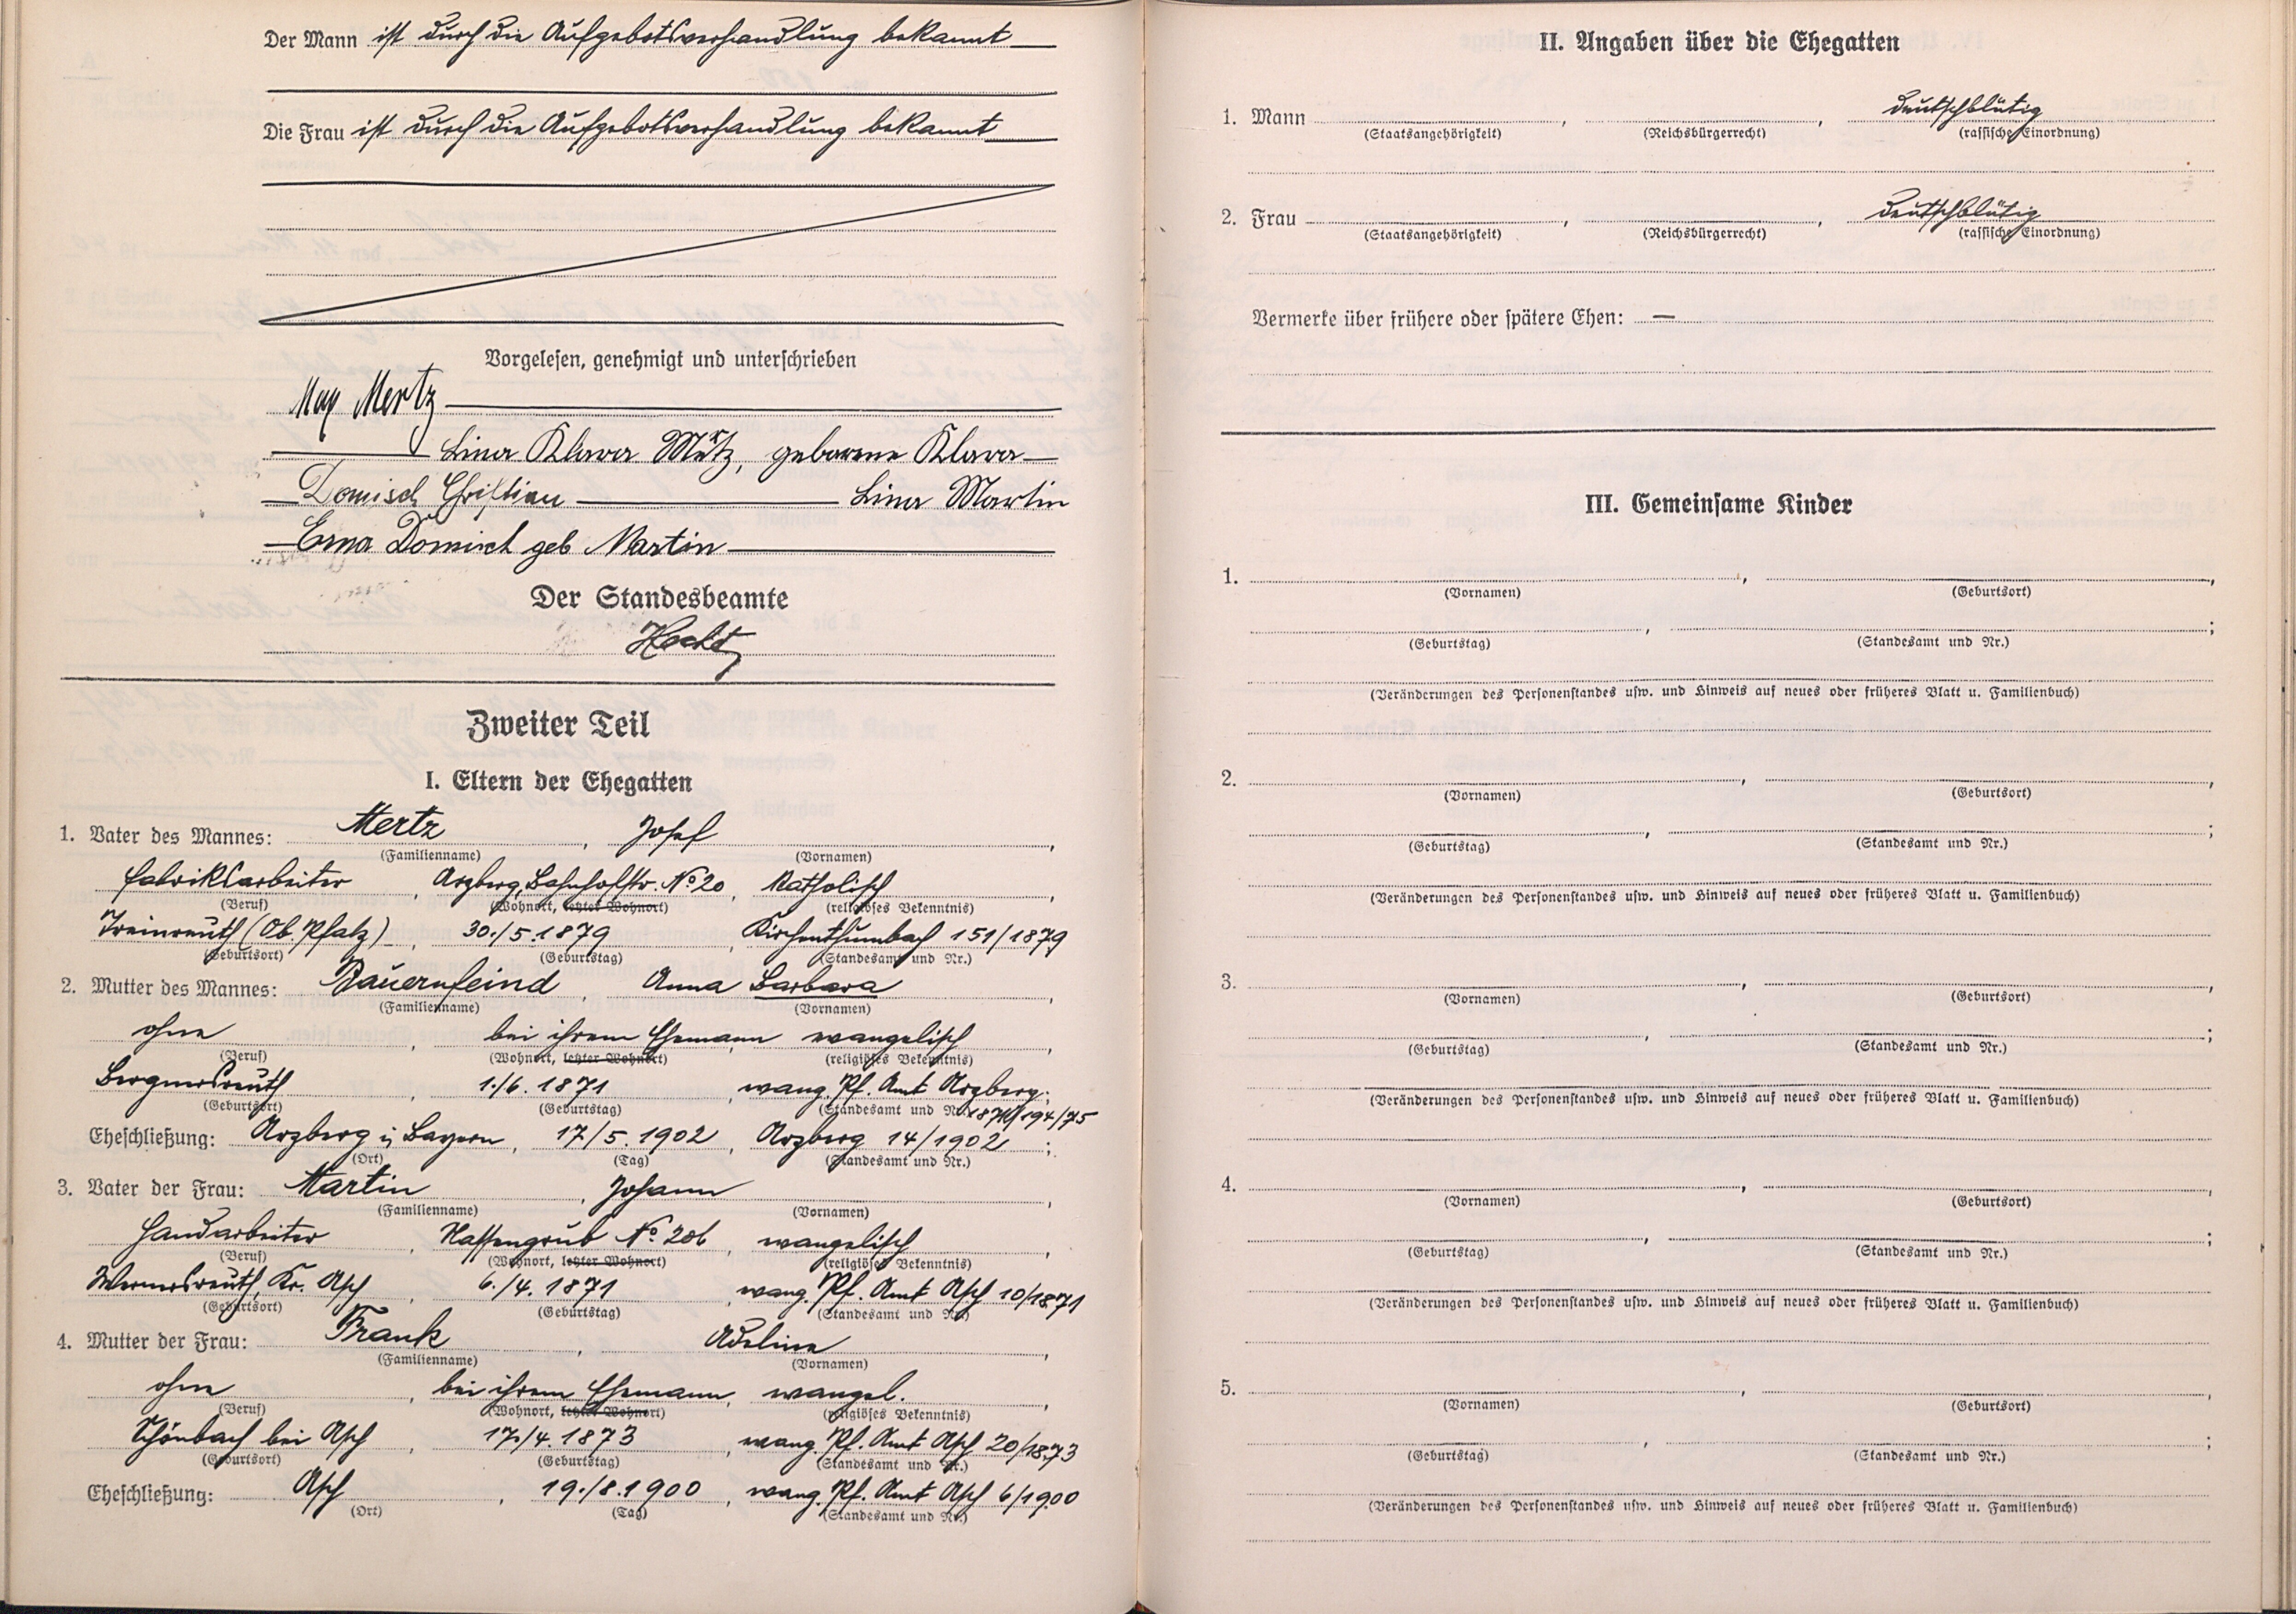 Der Mann ist durch die Aufgebotsverhandlung bekannt
Die Frau ist durch die Aufgebotsverhandlung bekannt
Vorgelesen, genehmigt und unterschrieben
Max Mertz
Lina Klara Mertz, geborene Klara
Domisch Christian Lina Martin
Erna Domisch geb Martin
Der Standesbeamte
Hecht
Zweiter Teil
I. Eltern der Ehegatten
1. Vater des Mannes: Mertz, Josef
(Familienname) (Vornamen)
Fabriksarbeiter, Arzberg, Bahnhofstr. No 20, katholisch,
(Beruf) (Wohnort, letzter Wohnort) (religiöses Bekenntnis)
Treinreuth (Ob. Pfalz), 30./5.1879, Kirchenthumbach 151/1879
(Geburtsort) (Geburtstag) (Standesamt und Nr.)
2. Mutter des Mannes: Bauernfeind, Anna Barbara,
(Familienname) (Vornamen)
ohne, bei ihrem Ehemann evangelisch,
(Beruf) (Wohnort, letzter Wohnort) (religiöses Bekenntnis)
Bergnersreuth, 1./6.1871, evang. Pf. Amt Arzberg;
(Geburtsort) (Geburtstag) (Standesamt und Nr.) 194/75
Eheschließung: Arzberg i/ Bayern, 17/5.1902, Arzberg 14/1902;
(Ort) (Tag) (Standesamt und Nr.)
3. Vater der Frau: Martin, Johann,
(Familienname) (Vornamen)
Handarbeiter, Nassengrub No 206, evangelisch,
(Beruf) (Wohnort, letzter Wohnort) (religiöses Bekenntnis)
Wernersreuth, Kr. Asch, 6./4.1871, evang. Pf. Amt Asch 10/1871
(Geburtsort) (Geburtstag) (Standesamt und Nr.)
4. Mutter der Frau: Frank, Adelina,
(Familienname) (Vornamen)
ohne, bei ihrem Ehemann, evangel.,
(Beruf) (Wohnort, letzter Wohnort) (religiöses Bekenntnis)
Schönbach bei Asch, 17./4.1873, evang. Pf. Amt Asch 20/1873
(Geburtsort) (Geburtstag) (Standesamt und Nr.)
Eheschließung: Asch, 19./8.1900, evang. Pf. Amt Asch 6/1900
(Ort) (Tag) (Standesamt und Nr.)
II. Angaben über die Ehegatten
1. Mann , , deutschblütig
(Staatsangehörigkeit) (Reichsbürgerrecht) (rassische Einordnung)
2. Frau , , deutschblütig
(Staatsangehörigkeit) (Reichsbürgerrecht) (rassische Einordnung)
Vermerke über frühere oder spätere Ehen: —
III. Gemeinsame Kinder
1. , ,
(Vornamen) (Geburtsort)
, ;
(Geburtstag) (Standesamt und Nr.)
(Veränderungen des Personenstandes usw. und Hinweis auf neues oder früheres Blatt u. Familienbuch)
2. , ,
(Vornamen) (Geburtsort)
, ;
(Geburtstag) (Standesamt und Nr.)
(Veränderungen des Personenstandes usw. und Hinweis auf neues oder früheres Blatt u. Familienbuch)
3. , ,
(Vornamen) (Geburtsort)
, ;
(Geburtstag) (Standesamt und Nr.)
(Veränderungen des Personenstandes usw. und Hinweis auf neues oder früheres Blatt u. Familienbuch)
4. , ,
(Vornamen) (Geburtsort)
, ;
(Geburtstag) (Standesamt und Nr.)
(Veränderungen des Personenstandes usw. und Hinweis auf neues oder früheres Blatt u. Familienbuch)
5. , ,
(Vornamen) (Geburtsort)
, ;
(Geburtstag) (Standesamt und Nr.)
(Veränderungen des Personenstandes usw. und Hinweis auf neues oder früheres Blatt u. Familienbuch)